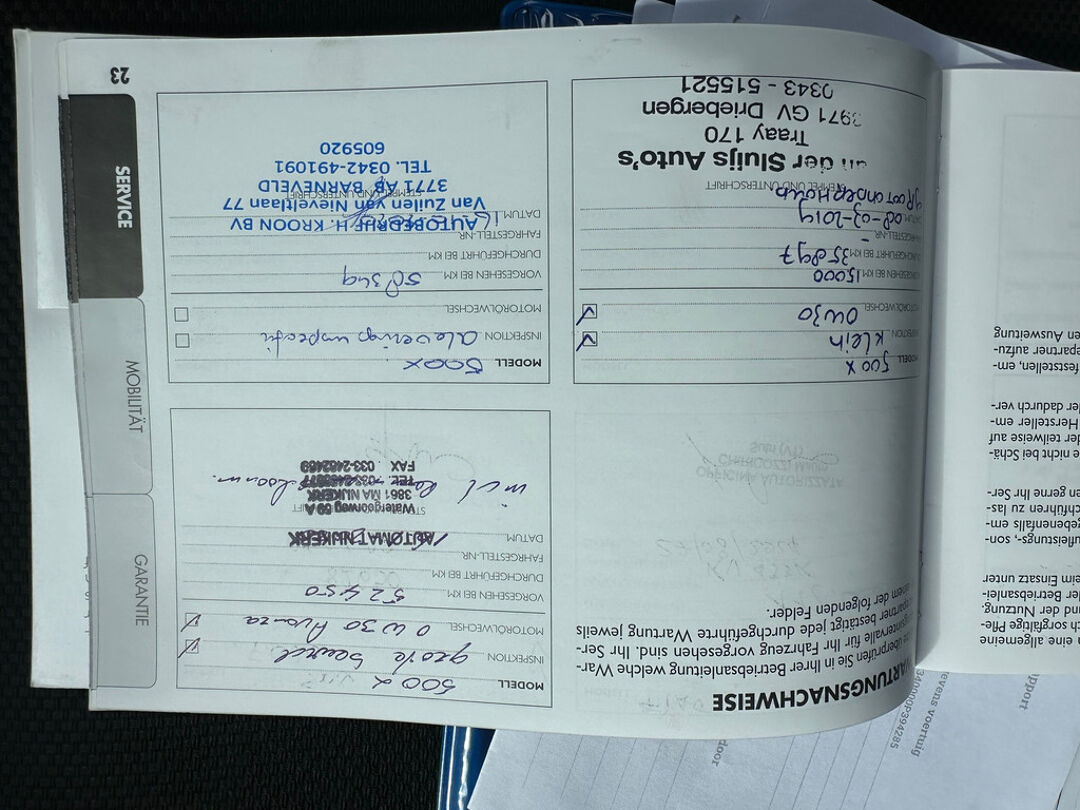 WARTUNGSNACHWEISE
überprüfen Sie in Ihrer Betriebsanleitung welche War-
tungsintervalle für Ihr Fahrzeug vorgesehen sind. Ihr Ser-
vicepartner bestätigt jede durchgeführte Wartung jeweils
einem der folgenden Felder.
OFFICINA AUTORIZZATA
MODELL 500 X
INSPEKTION Klein
MOTORÖLWECHSEL 0W30
VORGESEHEN BEI KM 15000
DURCHGEFÜHRT BEI KM 35897
FAHRGESTELL-NR. -
DATUM 08-03-2019
groot onderhoud
STEMPEL UND UNTERSCHRIFT
der Sluijs Auto's
Traay 170
3971 GV Driebergen
0343 - 515521
MODELL 500X
INSPEKTION grote beurt
MOTORÖLWECHSEL 0W30
VORGESEHEN BEI KM 52450
DURCHGEFÜHRT BEI KM
FAHRGESTELL-NR.
DATUM
AUTOMAT NIJKERK
Watergoorweg 59 A
3861 MA NIJKERK
FAX 033-2462469
MODELL 500X
INSPEKTION
MOTORÖLWECHSEL
VORGESEHEN BEI KM 58349
DURCHGEFÜHRT BEI KM
FAHRGESTELL-NR.
DATUM
STEMPEL UND UNTERSCHRIFT
AUTOBEDRIJF H. KROON BV
Van Zuilen van Nieveltlaan 77
3771 AB BARNEVELD
TEL. 0342-491091
605920
23
SERVICE
MOBILITÄT
GARANTIE
en eine allgemeine
ch sorgfältige Pfle-
und der Nutzung.
der Betriebsanlei-
eim Einsatz unter
ufleistungs-, son-
gebenenfalls em-
chführen zu las-
en gerne Ihr Ser-
e nicht bei Schä-
der teilweise auf
Hersteller em-
der dadurch ver-
feststellen, em-
epartner aufzu-
en Auswirkung
pport
evens voertuig
door